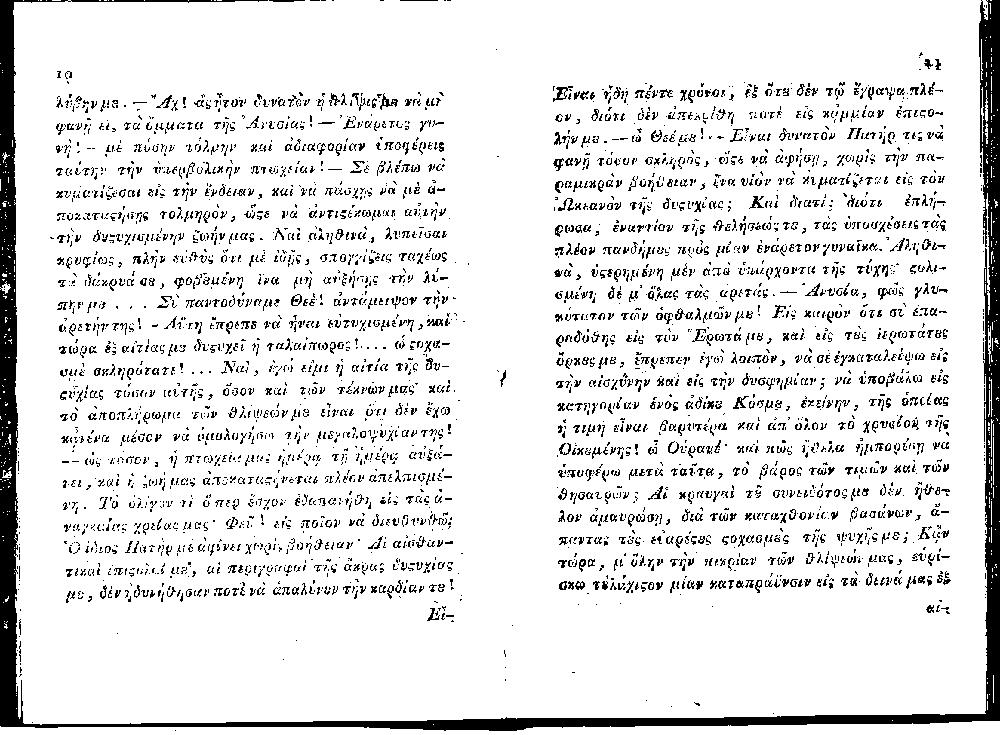 10
λύψην μȣ. — Ἄχ! ἂς ἦτον δυνατὸν ἡ θλίψις μȣ νὰ μὴ
φανῇ εἰς τὰ ὄμματα τῆς Ἀνυσίας! — Ἐνάρετος γυ-
νή! — μὲ πόσην τόλμην καὶ ἀδιαφορίαν ὑποφέρεις
ταύτην τὴν ὑπερβολικὴν πτωχείαν! — Σὲ βλέπω νὰ
κυματίζεσαι εἰς τὴν ἔνδειαν, καὶ νὰ πάσχῃς νὰ μὲ ἀ-
ποκαταϛήσῃς τολμηρὸν, ὥϛε νὰ ἀντιϛέκωμαι αὐτὴν
τὴν δυϛυχισμένην ζωήν μας. Ναὶ ἀληθινὰ, λυπεῖσαι
κρυφίως, πλὴν εὐθὺς ὅτι μὲ ἰδῇς, σπογγίζεις ταχέως
τὰ δάκρυά σȣ, φοβȣμένη ἵνα μὴ αὐξήσῃς τὴν λύ-
πην μȣ.... Σὺ παντοδύναμε Θεὲ! ἀντάμειψον τὴν
ἀρετήν της! - Αὕτη ἔπρεπε νὰ ἦναι εὐτυχισμένη, καὶ
τώρα ἐξ αἰτίας μȣ δυϛυχεῖ ἡ ταλαίπωρος!.... ὦ ϛοχα-
σμὲ σκληρότατε!... Ναὶ, ἐγὼ εἶμι ἡ αἰτία τῆς δυ-
ϛυχίας τόσον αὐτῆς, ὅσον καὶ τῶν τέκνων μας· καὶ
τὸ ἀποπλήρωμα τῶν θλίψεών μȣ εἶναι ὅτι δὲν ἔχω
κᾀνένα μέσον νὰ ὁμολογήσω τὴν μεγαλοψυχίαν της!
— ὡς τόσον, ἡ πτωχεία μας ἡμέρᾳ τῇ ἡμέρᾳ αὐξά-
νει, καὶ ἡ ζωή μας ἀποκαταϛήνεται πλέον ἀπελπισμέ-
νη. Τὸ ὀλίγον τὶ ὅπερ ἔσχον ἐδαπανήθη εἰς τὰς ἀ-
ναγκαίας χρείας μας· Φεῦ! εἰς ποῖον νὰ διευθυνθῶ;
Ὁ ἴδιος Πατήρ μὲ ἀφίνει χωρὶς βοήθειαν· Αἱ αἰσθαν-
τικαὶ ἐπιϛολαί μȣ, αἱ περιγραφαὶ τῆς ἄκρας δυϛυχίας
μȣ, δὲν ἠδυνήθησαν ποτὲ νὰ ἁπαλύνȣν τὴν καρδίαν τȣ!
Εἶ-
11
Εἶναι ἤδη πέντε χρόνοι, ἐξ ὅτȣ δὲν τῷ ἔγραψα πλέ-
ον, διότι δὲν ἀπεκρίθη ποτὲ εἰς κᾀμμίαν ἐπιϛο-
λήν μȣ. — ὦ Θεέ μȣ! -- Εἶναι δυνατὸν Πατήρ τις νὰ
φανῇ τόσον σκληρὸς, ὥϛε νὰ ἀφήσῃ, χωρὶς τὴν πα-
ραμικρὰν βοήθειαν, ἕνα υἱὸν νὰ κυματίζεται εἰς τὸν
Ὠκεανὸν τῆς δυϛυχίας; Καὶ διατί; διότι ἐπλή-
ρωσα, ἐναντίον τῆς θελήσεώς τȣ, τὰς ὑποσχέσεις τὰς
πλέον πανδήμȣς πρὸς μίαν ἐνάρετον γυναῖκα. Ἀληθι-
νὰ, ὑϛερημένη μὲν ἀπὸ ὑπάρχοντα τῆς τύχης· ϛολι-
σμένη δὲ μ' ὅλας τὰς ἀρετάς. — Ἀνυσία, φῶς γλυ-
κύτατον τῶν ὀφθαλμῶν μȣ! Εἰς καιρὸν ὅτι σὺ ἐπα-
ραδόθης εἰς τὸν Ἔρωτά μȣ, καὶ εἰς τȣς ἱερωτάτȣς
ὅρκȣς μȣ, ἔπρεπεν ἐγὼ λοιπὸν, νὰ σὲ ἐγκαταλείψω εἰς
τὴν αἰσχύνην καὶ εἰς τὴν δυσφημίαν; νὰ ὑποβάλω εἰς
κατηγορίαν ἑνὸς ἀδίκȣ Κόσμȣ, ἐκείνην, τῆς ὁποίας
ἡ τιμὴ εἶναι βαρυτέρα καὶ ἀπ' ὅλον τὸ χρυσίον τῆς
Οἰκȣμένης! ὦ Οὐρανέ· καὶ πῶς ἤθελα ἠμπορέσῃ νὰ
ὑποφέρω μετὰ ταῦτα, τὸ βάρος τῶν τιμῶν καὶ τῶν
θησαυρῶν; Αἱ κραυγαὶ τȣ συνειδότος μȣ δὲν ἤθε-
λον ἀμαυρώσῃ, διὰ τῶν καταχθονίων βασάνων, ἅ-
παντας τȣς εὐαρέϛȣς ϛοχασμȣς τῆς ψυχῆς μȣ; Κᾂν
τώρα, μ' ὅλην τὴν πικρίαν τῶν θλίψεών μας, εὑρί-
σκω τȣλάχιϛον μίαν καταπράϋνσιν εἰς τὰ δεινά μας ἐξ
αἰ-